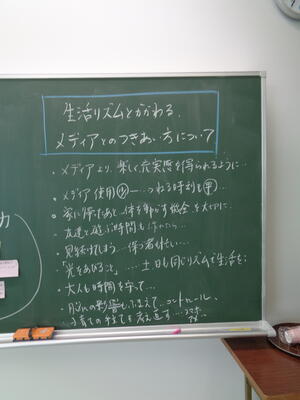 生活リズムとかかわる、
メディアとのつきあい方について
・メディアより、楽しく充実感を得られるように…
・メディア使用少…ねる時刻も早…
・家に帰ったあと体を動かす機会を大切に…
・友達と遊ぶ時間も作れたら…
・見続けてしまう…保護者付きい…
・「光をあびること」……土、日も同じリズムで生活を…
・大人も時間を守って…
の影響もふまえて、コントロール、
・子育ての中で考え直す…スマホ
力